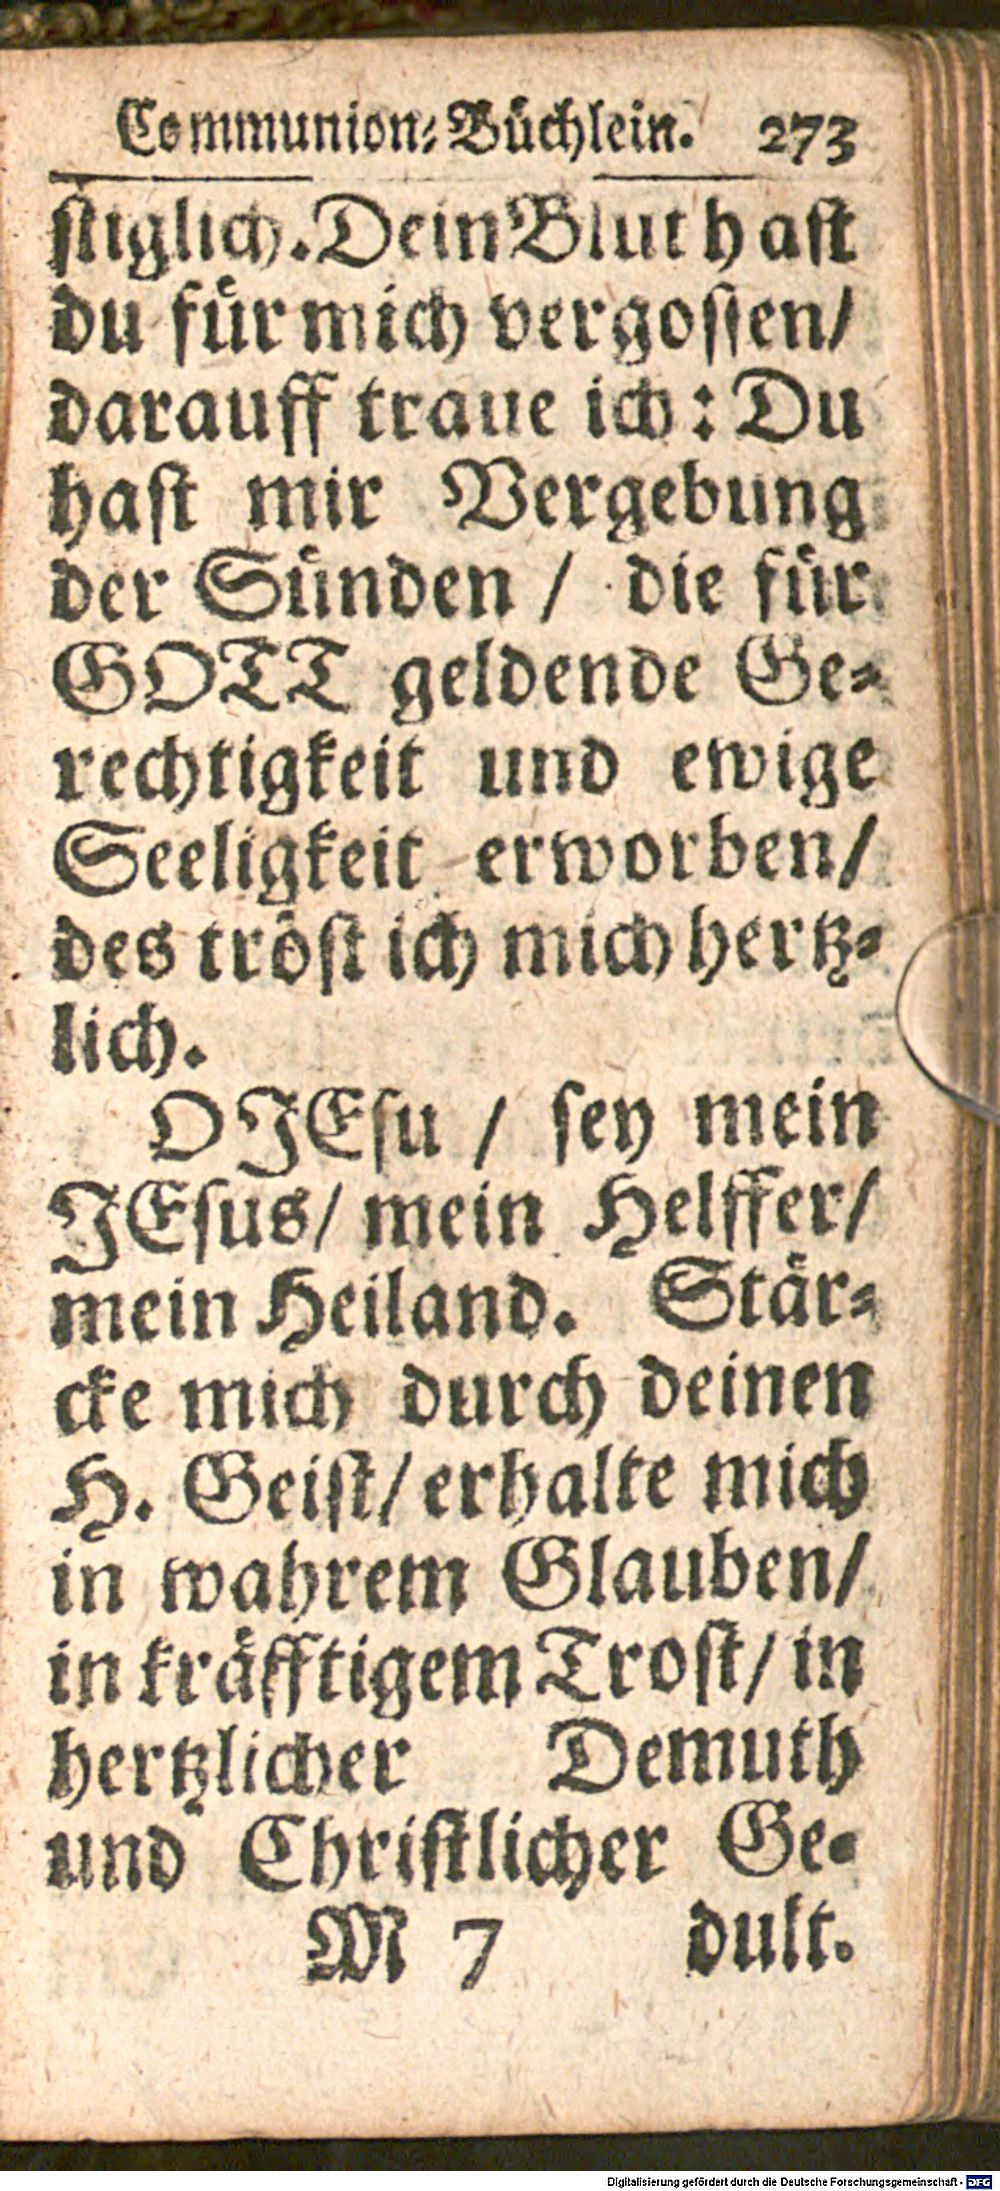 Communion-Büchlein. 273
stiglich. Dein Blut hast
du für mich vergossen/
darauff traue ich: Du
hast mir Vergebung
der Sünden / die für
GOTT geldende Ge-
rechtigkeit und ewige
Seeligkeit erworben/
des tröst ich mich hertz-
lich.
O JEsu / sey mein
JEsus/ mein Helffer/
mein Heiland. Stär-
cke mich durch deinen
H. Geist/ erhalte mich
in wahrem Glauben/
in kräfftigem Trost/ in
hertzlicher Demuth
und Christlicher Ge-
M 7 dult.
Digitalisierung gefördert durch die Deutsche Forschungsgemeinschaft - DFG